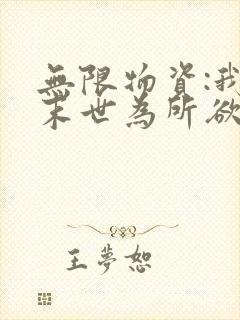 無限物資:我
末世為所欲
王夢恕